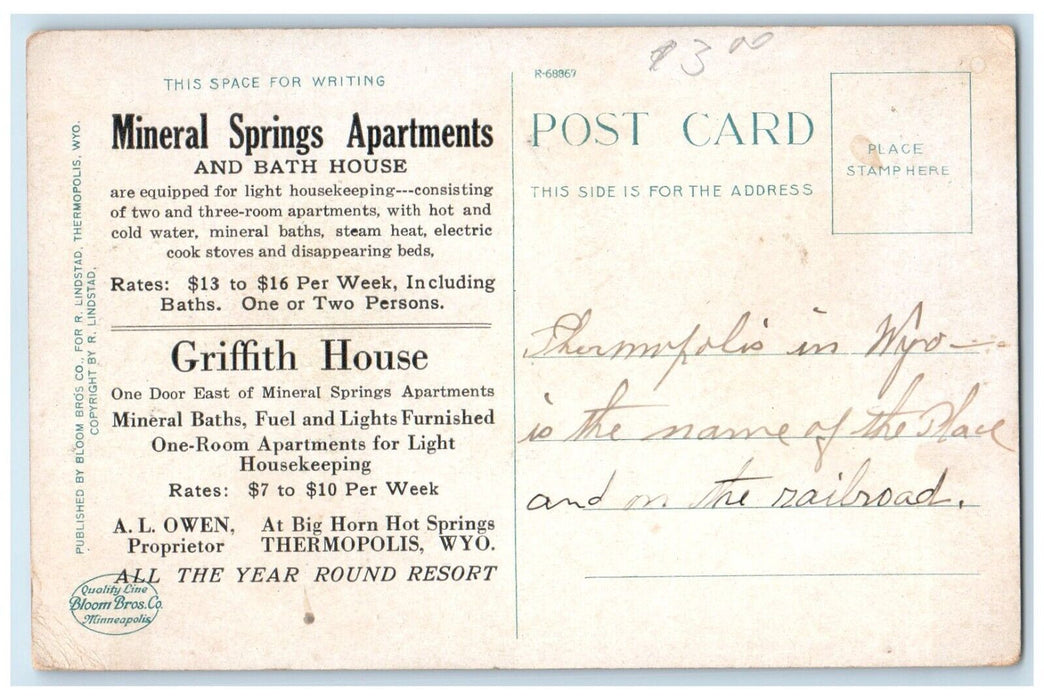 $3.00
THIS SPACE FOR WRITING
Mineral Springs Apartments
AND BATH HOUSE
are equipped for light housekeeping---consisting
of two and three-room apartments, with hot and
cold water, mineral baths, steam heat, electric
cook stoves and disappearing beds,
Rates: $13 to $16 Per Week, Including
Baths. One or Two Persons.
Griffith House
One Door East of Mineral Springs Apartments
Mineral Baths, Fuel and Lights Furnished
One-Room Apartments for Light
Housekeeping
Rates: $7 to $10 Per Week
A. L. OWEN, At Big Horn Hot Springs
Proprietor THERMOPOLIS, WYO.
ALL THE YEAR ROUND RESORT
Quality Line
Bloom Bros. Co.
Minneapolis
PUBLISHED BY BLOOM BROS CO., FOR R. LINDSTAD, THERMOPOLIS, WYO.
COPYRIGHT BY R. LINDSTAD.
R-68867
POST CARD
THIS SIDE IS FOR THE ADDRESS
PLACE
STAMP HERE
Thermopolis in Wyo—
is the name of the Place
and on the railroad.